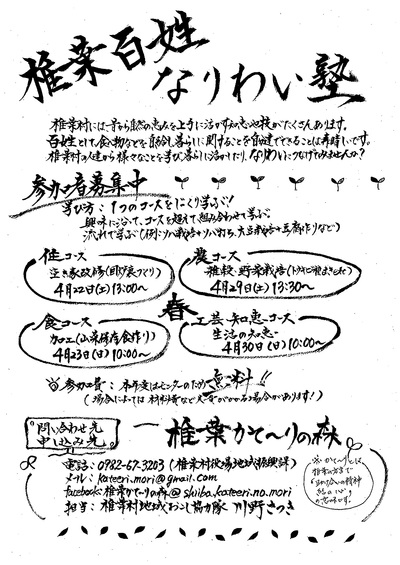 椎葉百姓
なりわい塾
椎葉村には、昔から自然の恵みを上手に活かす知恵や技がたくさんあります。
百姓とは、食べ物などを自給し暮らしに関することを自分でできることは素晴しいです。
椎葉村の人達から様々なことを学び、暮らしに活かしたり、なりわいにつなげてみませんか?
参加者募集中
学び方:1つのコースをじっくり学ぶ!
興味に沿って、コースを超えて組み合わせて学ぶ。
流れで学ぶ(例:ソバ栽培+ソバ打ち、大豆栽培+豆腐作りなど)
住コース
空き家改修(即興家づくり)
4月22日(土)13:00〜
農コース
雑穀・野菜栽培
4月29日(土)13:30〜
春
食コース
加工(山菜保存食作り)
4月23日(日)10:00〜
工芸・知恵コース
生活の知恵
4月30日(日)10:00〜
参加費:本年度はモニターのため無料!!
(場合によっては材料費など実費がかかる場合があります!)
問い合わせ先
申し込み先
椎葉かて〜りの森
電話:0982-67-3203(椎葉村役場地域振興課)
メール:kateeri.mori@gmail.com
facebook:椎葉かて〜りの森@shiiba.kateeri.no.mori
担当:椎葉村地域おこし協力隊 川野さつき
※かて〜りとは
椎葉の方言で
助け合いの精神
結の心
の意味です。